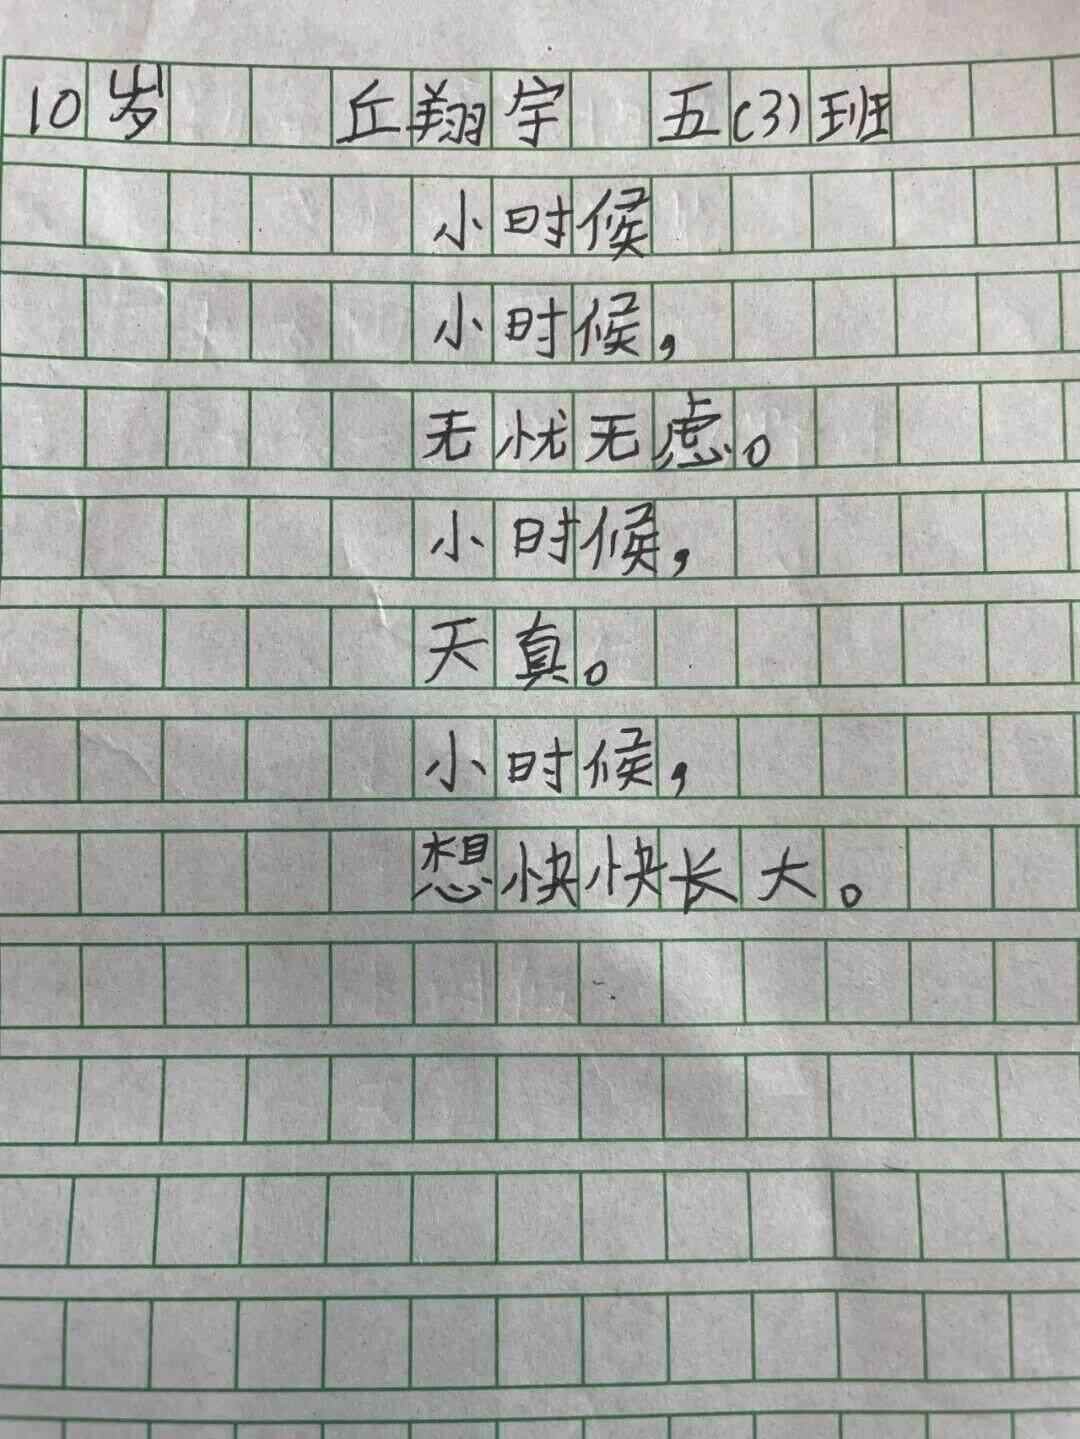 10岁 丘翔宇 五(3)班
小时候
小时候,
无忧无虑。
小时候,
天真。
小时候,
想快快长大。